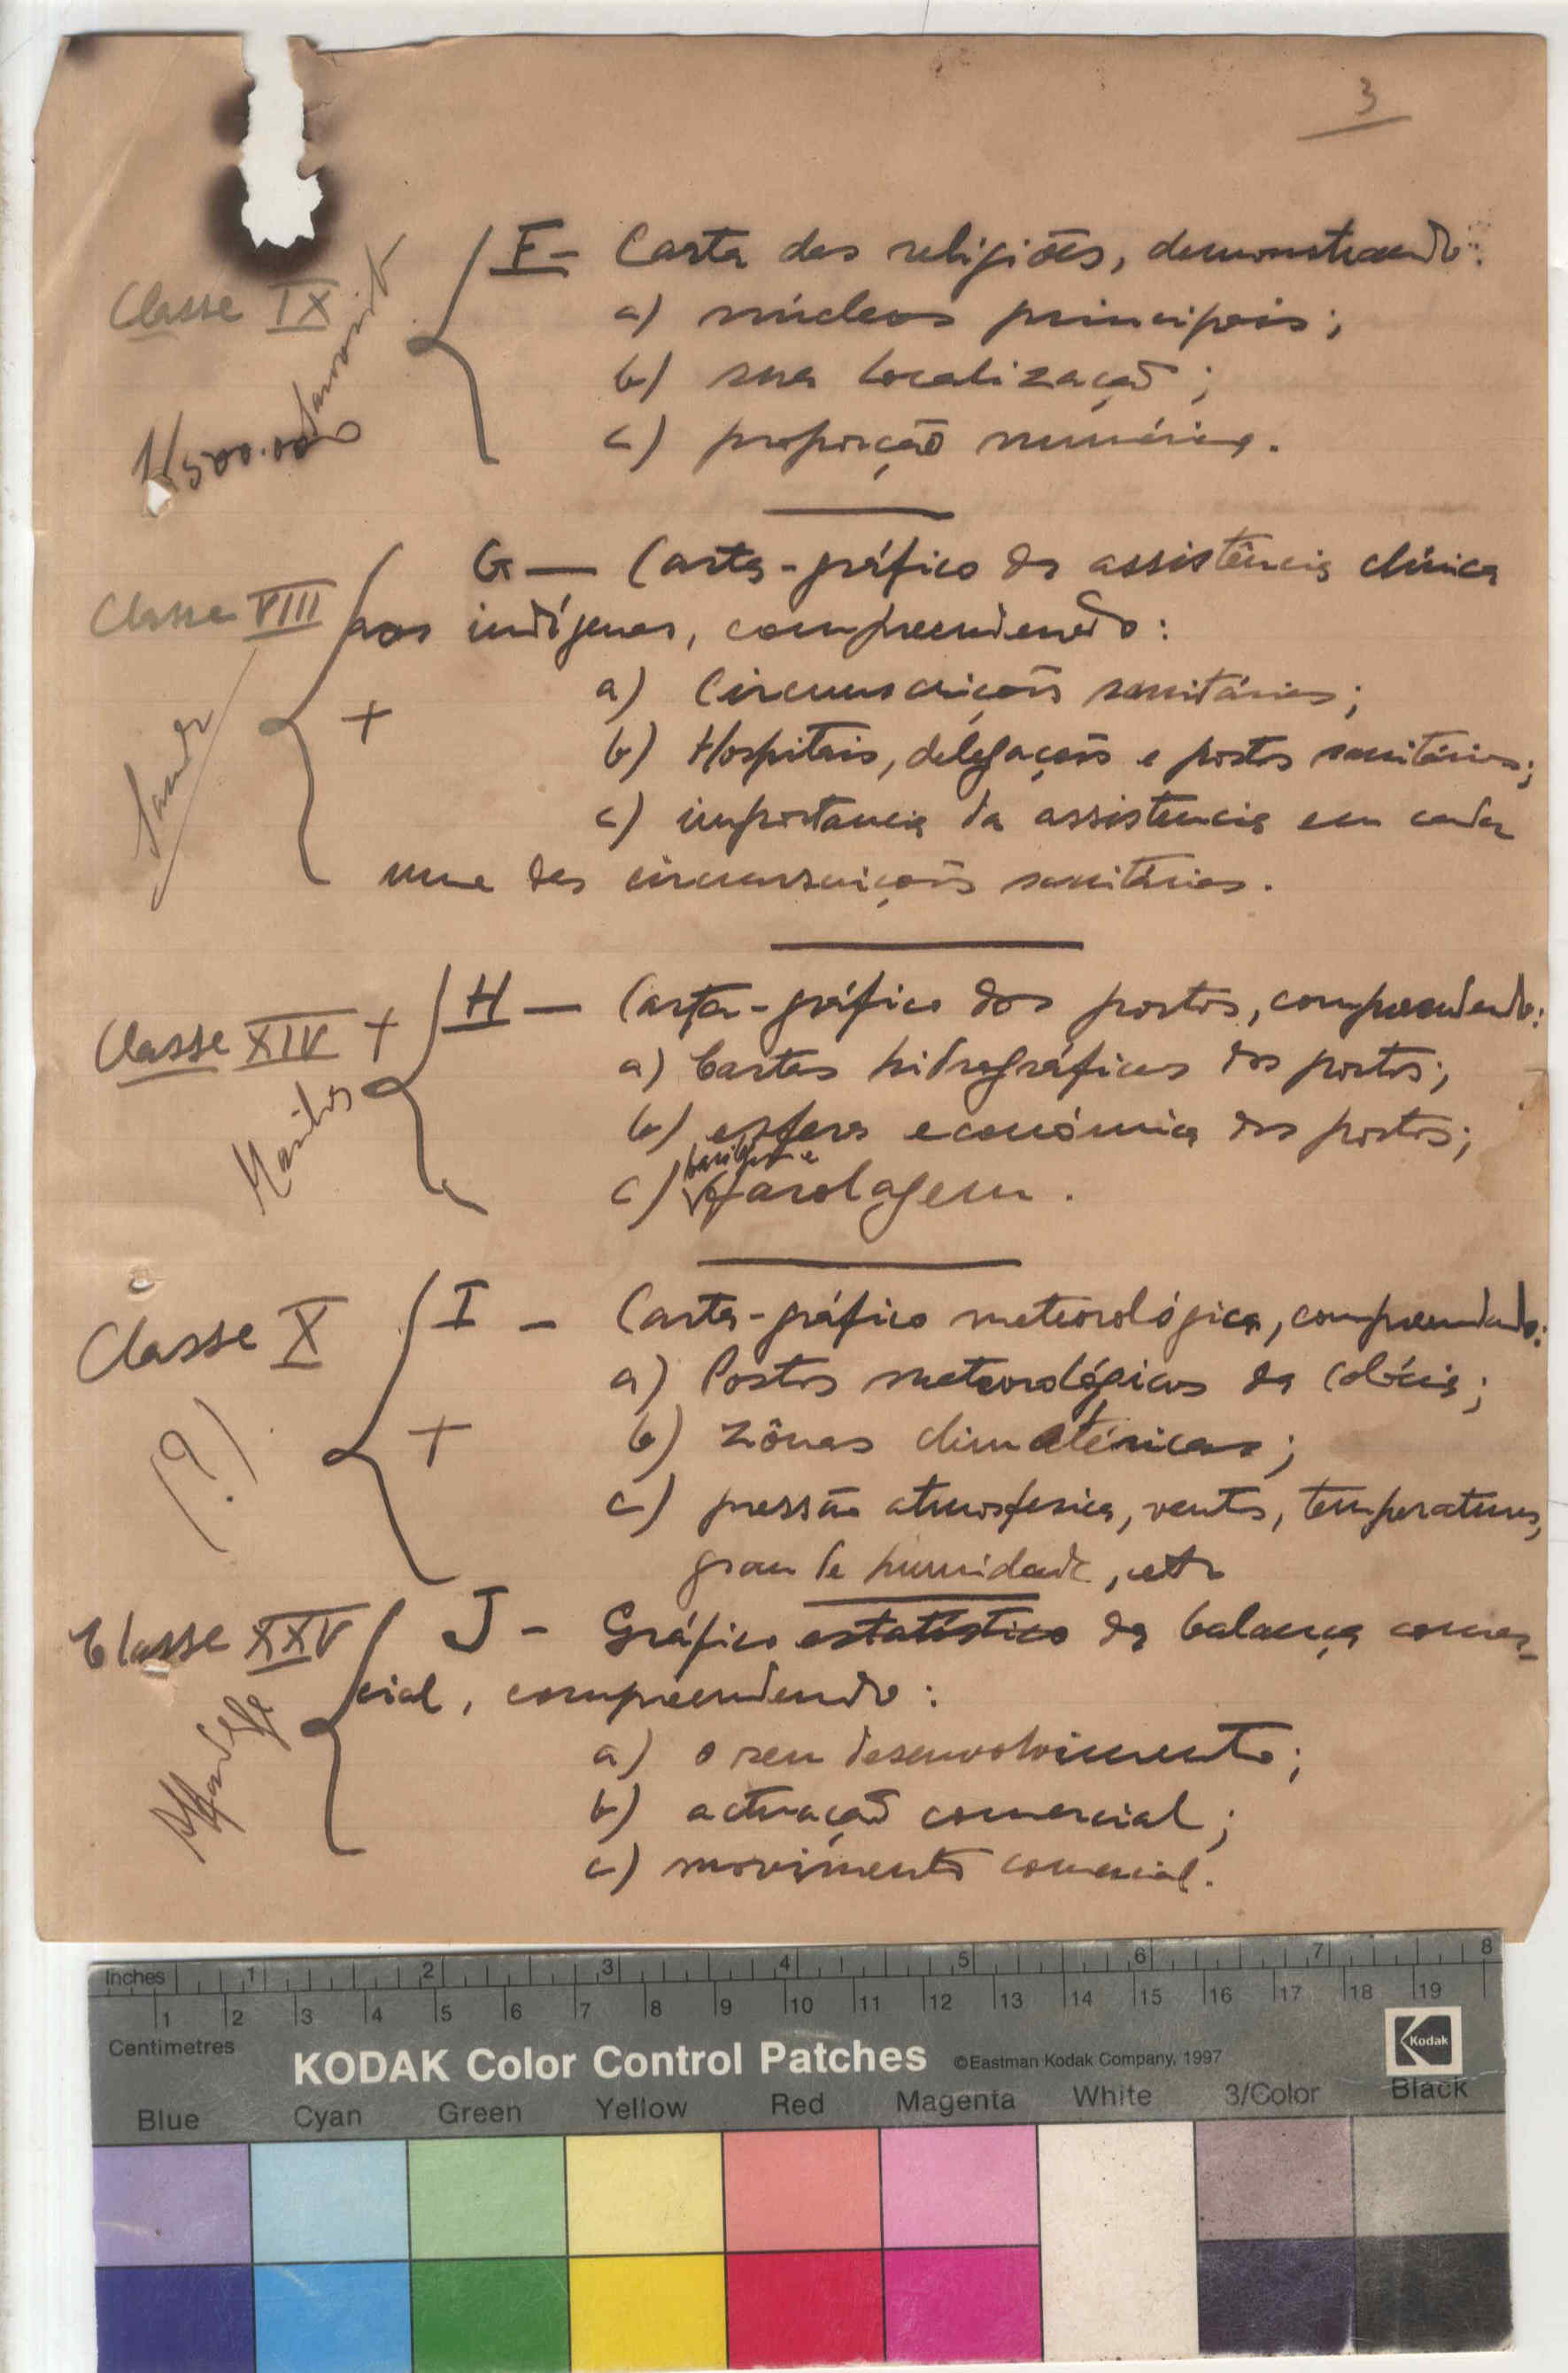 3
Classe IX
F - Carta das religiões, demonstrando:
a) núcleos principais;
b) sua localização;
c) proporção numérica.
1/500.000
Classe VIII
G — Carta-gráfico da assistência clínica
aos indígenas, compreendendo:
+
a) Circunscrições sanitárias;
b) Hospitais, delegações e postos sanitários;
c) importancia da assistencia em cada
uma das circunscrições sanitárias.
Saude
Classe XIV +
H — Carta-gráfico dos portos, compreendendo:
a) Cartas hidrográficas dos portos;
b) esfera económica dos portos;
c) farolagem.
Classe X
I - Carta-gráfico meteorológica, compreendendo:
a) Postos meteorológicos da Colónia;
+
b) Zônas climatéricas;
(?)
c) pressão atmosferica, ventos, temperaturas,
grau de humidade, etc
Classe XXV
J - Gráfico estatístico da balança comer-
cial, compreendendo:
a) o seu desenvolvimento;
b) actuação comercial;
c) movimento comercial.
Inches 1 2 3 4 5 6 7 8
1 2 3 4 5 6 7 8 9 10 11 12 13 14 15 16 17 18 19
Centimetres
KODAK Color Control Patches ©Eastman Kodak Company, 1997 Kodak
Blue Cyan Green Yellow Red Magenta White 3/Color Black